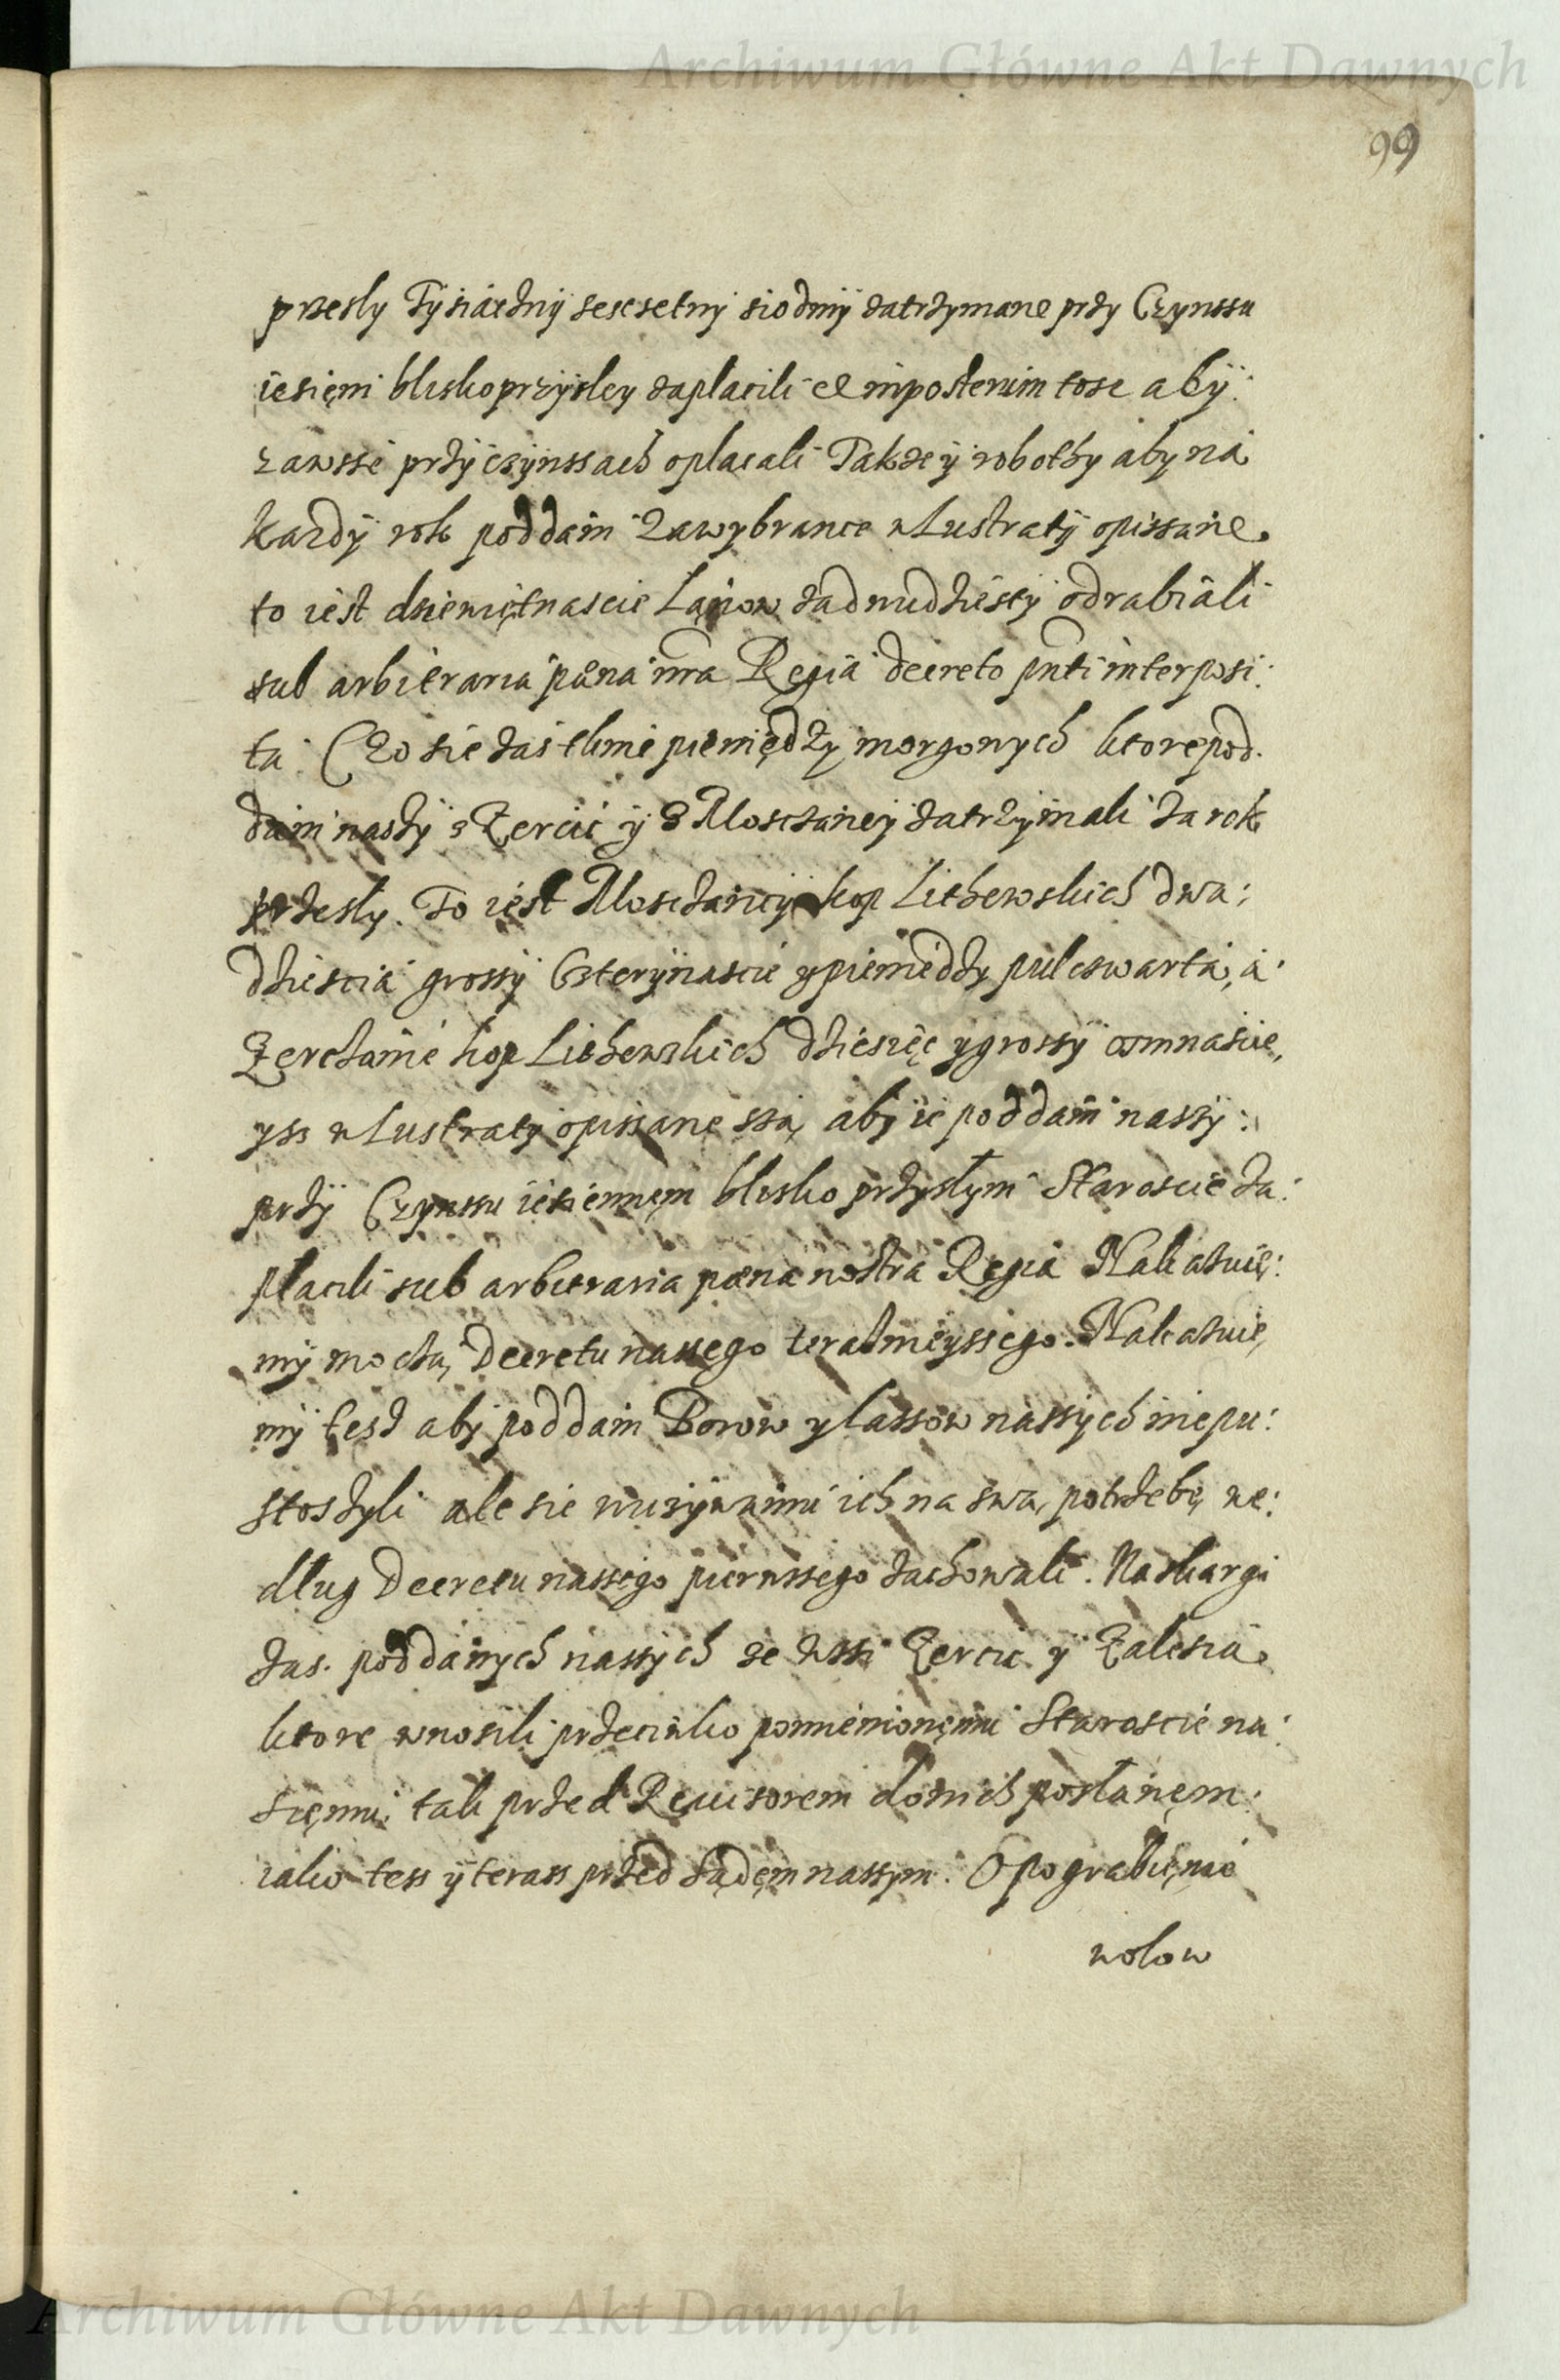 Archiwum Główne Akt Dawnych
99
przesły Tysiączny sescsetny siodmy zatrzymane przy Czynssu
iesięni blisko przysley zaplacili et inposterum tose aby
zawsse przy czynssach oplacali Takze y robothy aby na
kazdy rok poddani zawybrance w Lustraty opissane
to iest dziewiętnascie Łanow zadnudziesty odrabiali
sub arbitraria pæna nra Regia decreto pnti interposi:
ta Czo sie zas tknie pieniędzy morgowych ktore pod:
dani naszy z Zercic y z Mosczaney zatrzymali za rok
przesly. To iest Mosczanicy kop Lithewskich dwa:
dziescia grossy Czterynascie y pieniedzy pulczwarta, a
Zerczanie kop Lithewskich dziesięc y grossy osmnascie,
yss w Lustraty opissane ssą, aby ie poddani naszy:
przy Czynssu iesiennem blisko przyslym Staroscie za:
placili sub arbitraria pæna nostra Regia Nakazuię:
my moczą Decretu nassego teraznieyssego. Nakazuię
my tesz aby poddani Borow y lassow nassych nie pu:
stoszyli ale sie wuzywaniu ich na swą potrzebę we:
dlug Decretu nassego pierwssego zachowali. Na skargi
zas. poddanych nassych ze wssi Zercic y Zalesia
ktore wnosili przeciwko pomienionęmu Staroscie na:
szęmu tak przed Rewisorem do nich posłanęm:
iako tess y terass przed Sądęm nassym. O pograbięnie
wolow
Archiwum Główne Akt Dawnych